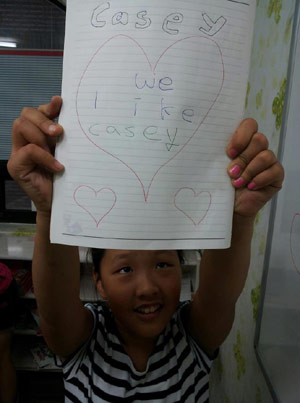 casey
we
l i k e
casey